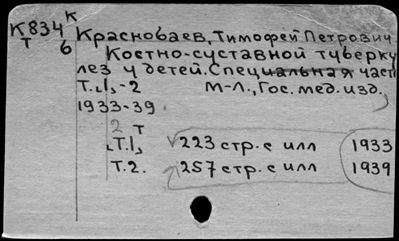 К834 к
Т 6
Краснобаев, Тимофей Петрович
Костно-суставной туберку
лез у детей. Специальная част
Т. 1-2 М-Л., Гос. мед. изд.,
1933-39.
2 т
Т.1. 223 стр. с илл 1933
Т.2. 257 стр. с илл 1939